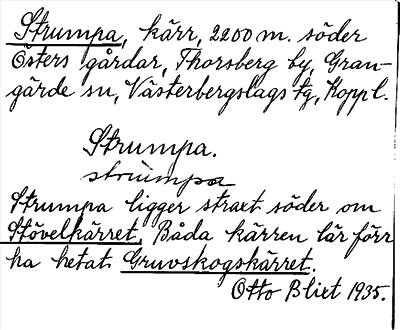 Strumpa, kärr, 2200 m. söder
Östers gårdar, Thorsberg by, Gran-
gärde sn, Västerbergslags tg, Koppl.
Strumpa.
strumpa
Strumpa ligger straxt söder om
Stövelkärret. Båda kärren lär förr
ha hetat Gruvskogskärret.
Otto Blixt 1935.